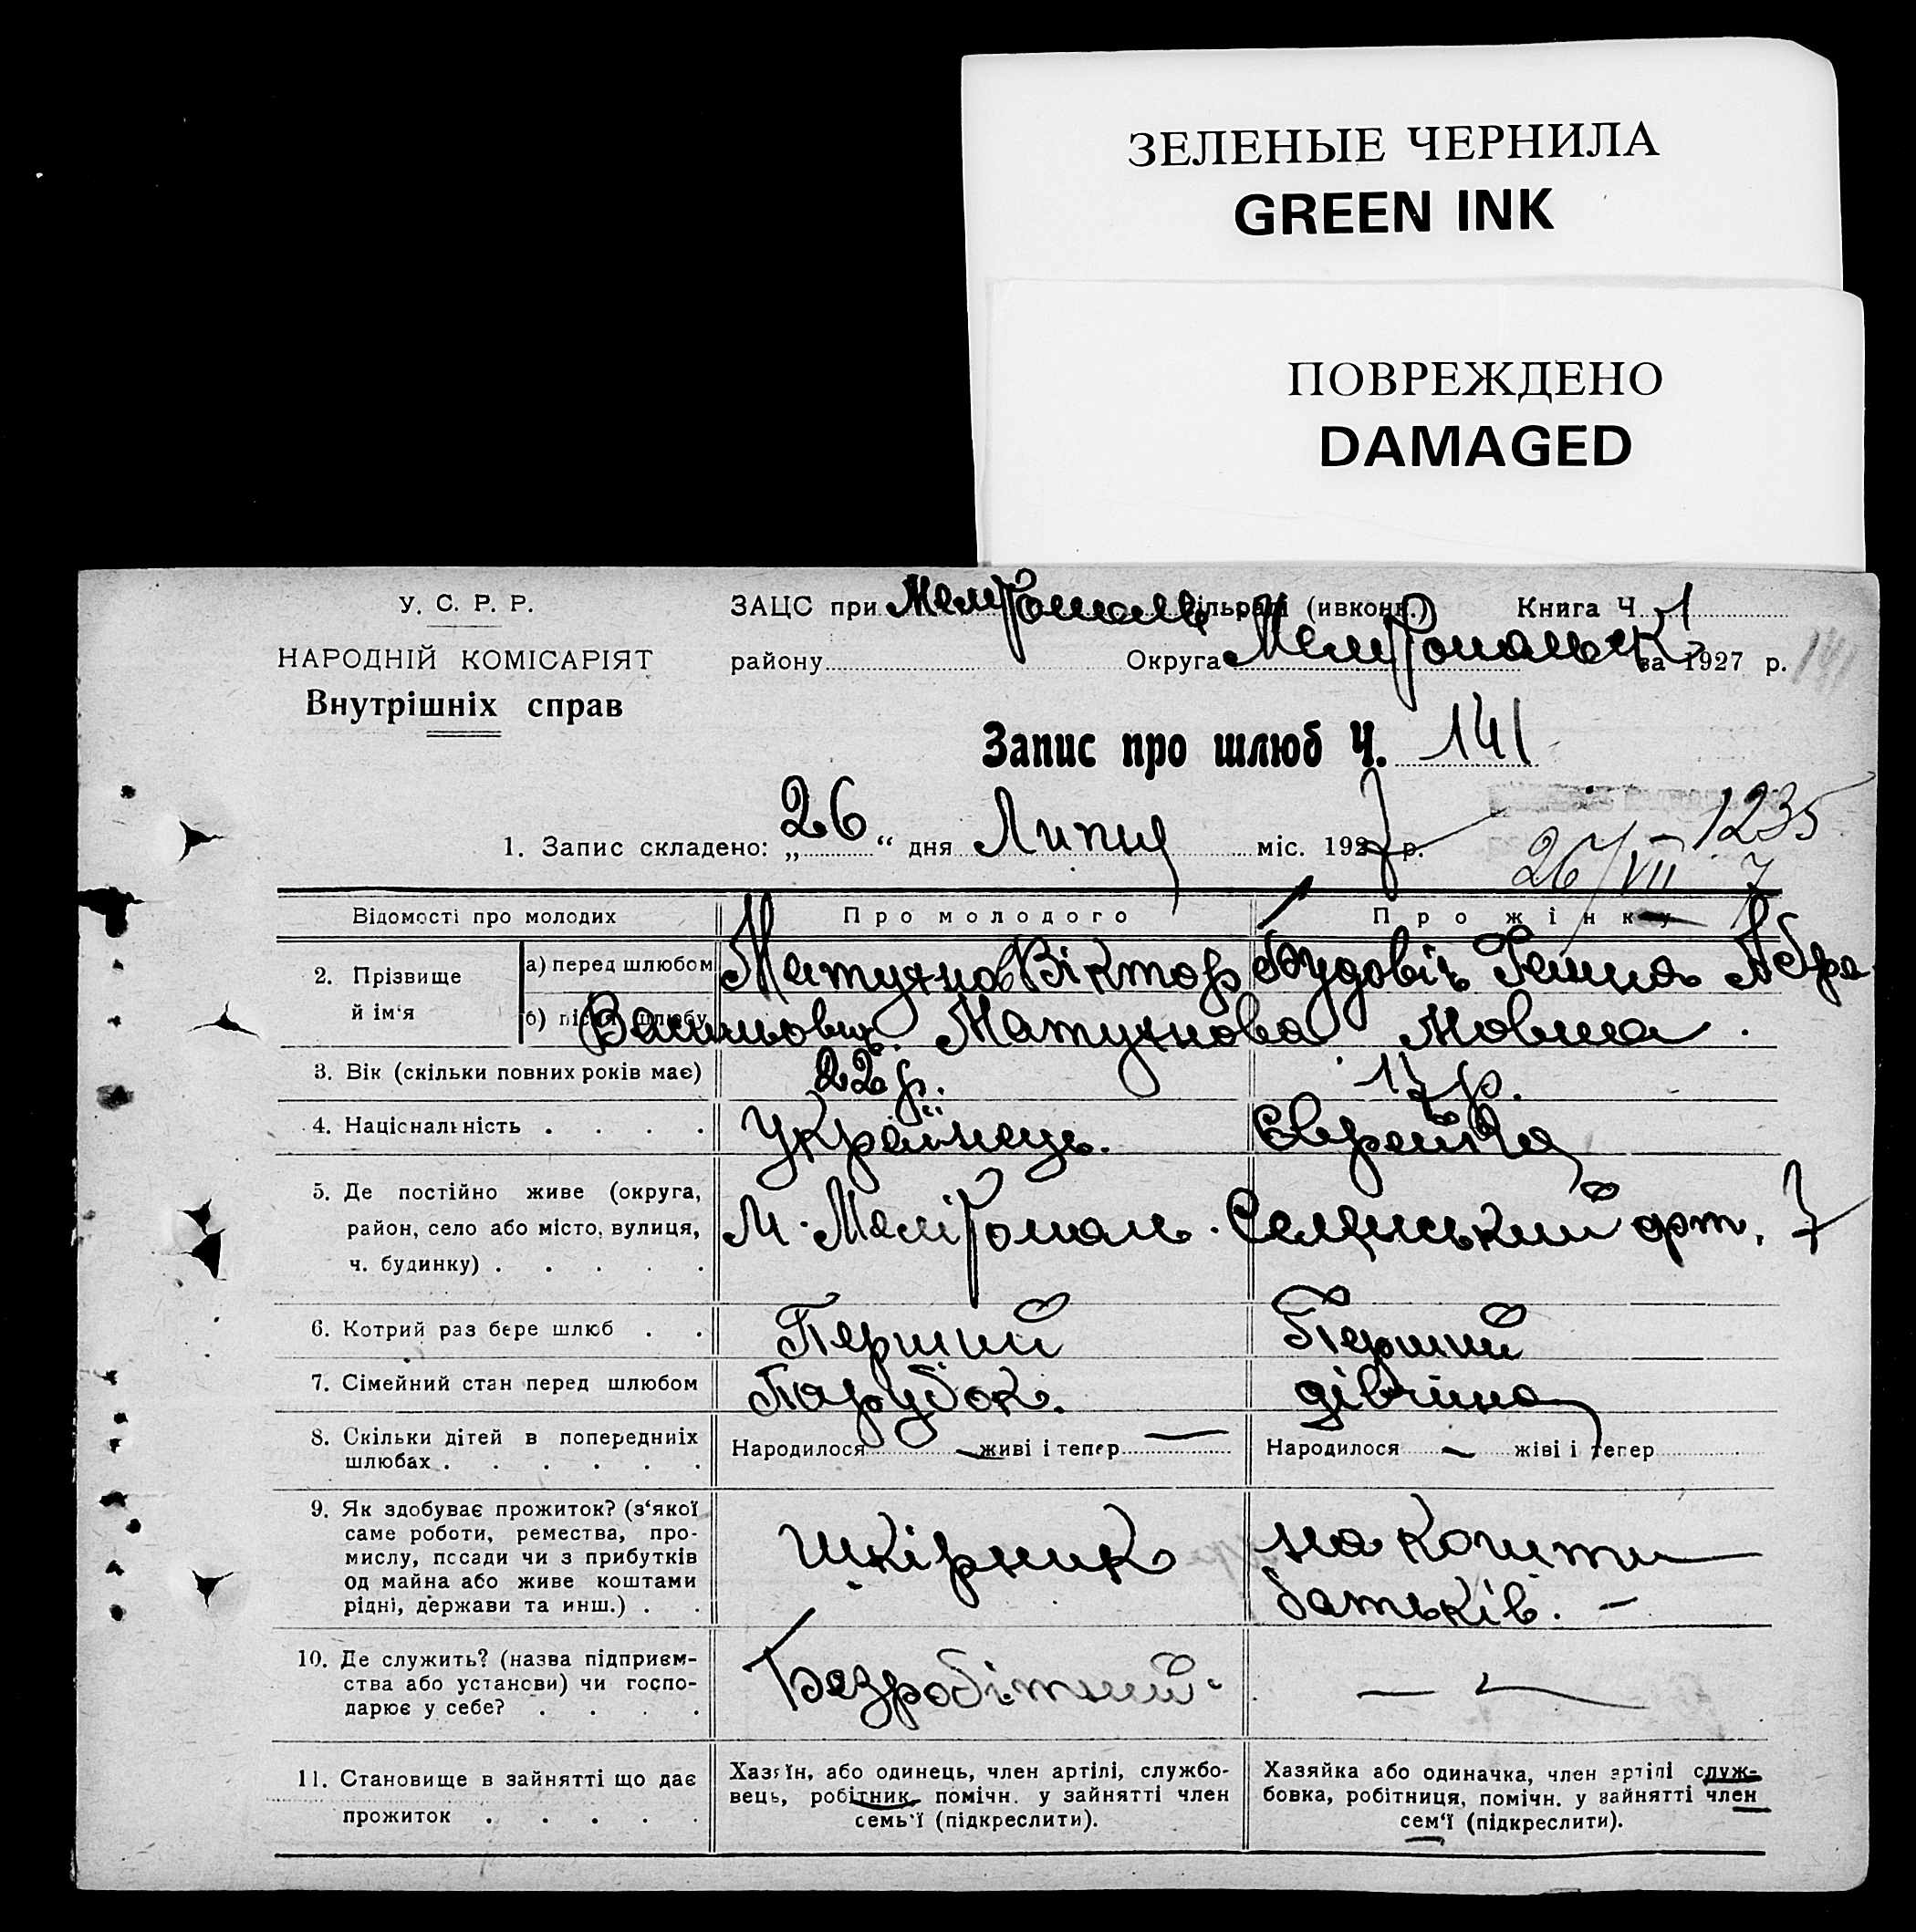 ЗЕЛЕНЫЕ ЧЕРНИЛА
GREEN INK
ПОВРЕЖДЕНО
DAMAGED
У. С. Р. Р.
НАРОДНІЙ КОМІСАРІЯТ
Внутрішніх справ
ЗАЦС при сільраді (ивконк.) Книга Ч. 1
району Округа Мелітопальськ за 1927 р. 141
Запис про шлюб Ч. 141
1235
1. Запис складено: „26“ дня Липня міс. 1927 р.
26/VII 7
Відомості про молодих Про молодого Про жінку
2. Прізвище й ім‘я
а) перед шлюбом Матухнов Віктор Будовіч Ганна Абра
б) після шлюбу Васильович. Матухнова мовна.
3. Вік (скільки повних років має) 22 р. 17 р.
4. Національність . . . . Українець. Єврейка
5. Де постійно живе (округа,
район, село або місто, вулиця, М. Мелітопаль.
ч. будинку) . . . . .
6. Котрий раз бере шлюб . . Перший Перший
7. Сімейний стан перед шлюбом Парубок. дівчина
8. Скільки дітей в попередніх Народилося — живі і тепер — Народилося — живі і тепер
шлюбах . . . . . .
9. Як здобуває прожиток? (з‘якої
саме роботи, ремества, про- Шкірник на кошти
мислу, посади чи з прибутків
од майна або живе коштами батьків. –
рідні, держави та инш.) . .
10. Де служить? (назва підприєм-
ства або установи) чи госпо- Безробітний. —
дарює у себе? . . . .
11. Становище в зайнятті що дає
прожиток . . . . .
Хазяїн, або одинець, член артілі, службо-
вець, робітник, помічн. у зайнятті член
семь‘ї (підкреслити).
Хазяйка або одиначка, член артілі служ-
бовка, робітниця, помічн. у зайнятті член
сем‘ї (підкреслити).